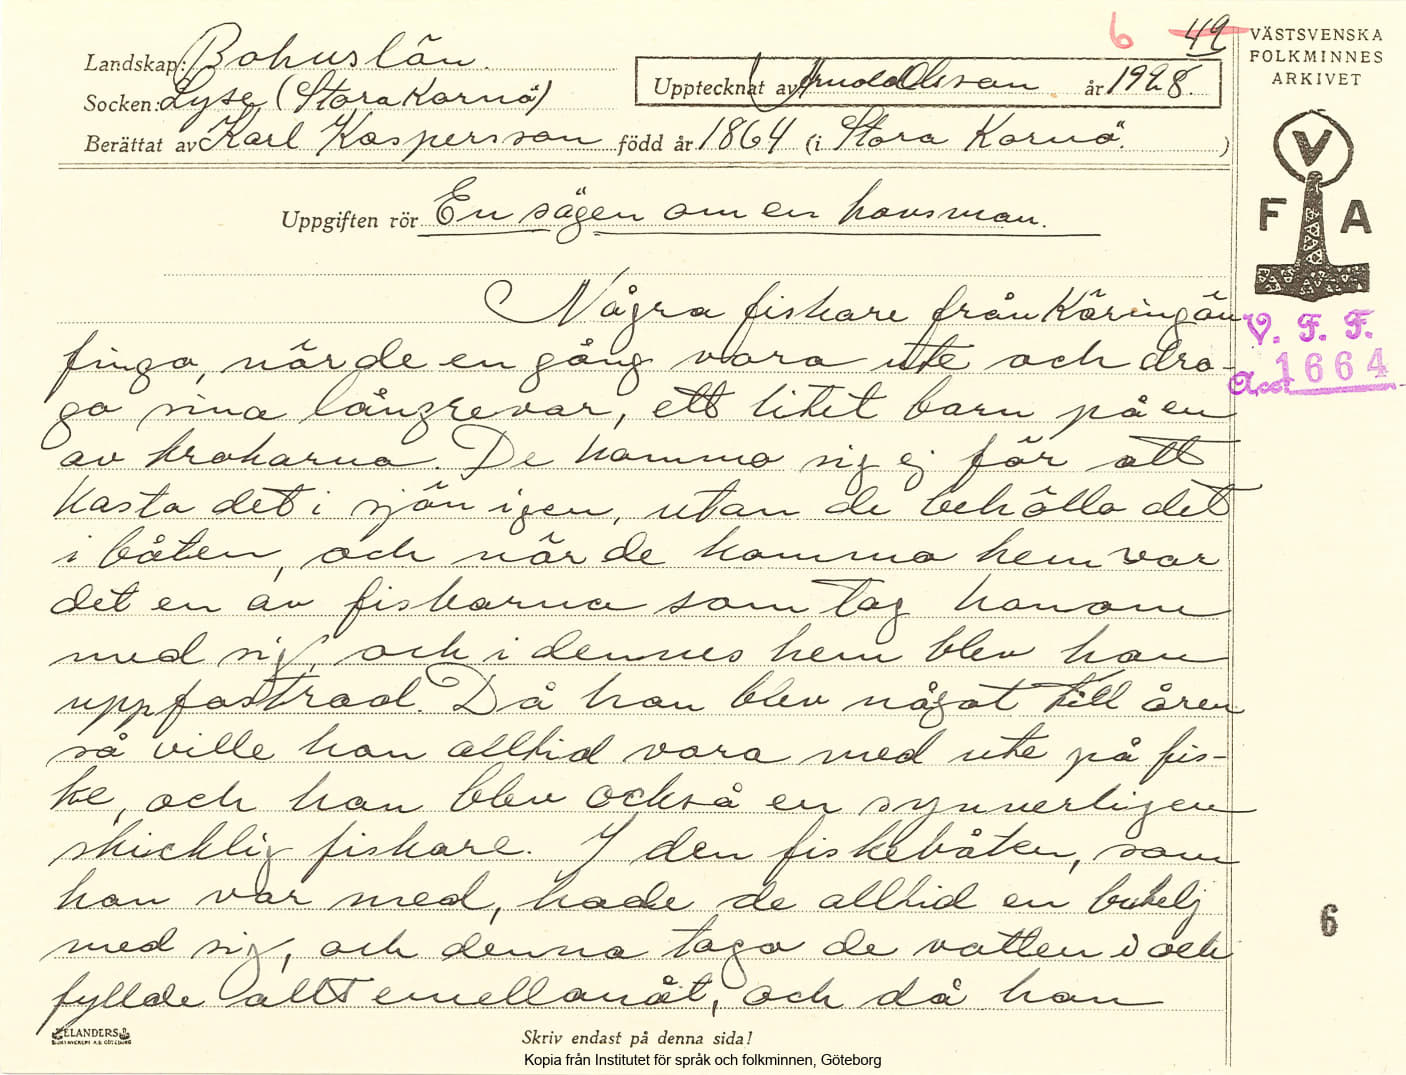 6 49
Landskap: Bohuslän.
Socken: Lyse (Stora Kornö)
Upptecknat av Arnold Olsson år 1928.
Berättat av Karl Kaspersson född år 1864 (i Stora Kornö. )
VÄSTSVENSKA
FOLKMINNES
ARKIVET
V
F A
Uppgiften rör En sägen om en havsman.
V. F. F.
Acc. 1664
Några fiskare från Käringön
fingo, när de en gång voro ute och dro-
go sina långrevar, ett litet barn på en
av krokarna. De kommo sig ej för att
kasta det i sjön igen, utan de behöllo det
i båten, och när de kommo hem var
det en av fiskarna som tog honom
med sig, och i dennes hem blev han
uppfostrad. Då han blev något till åren
så ville han alltid vara med ute på fis-
ke, och han blev också en synnerligen
skicklig fiskare. I den fiskebåten, som
han var med, hade de alltid en butelj
med sig, och denna togo de vatten i och
fyllde allt emellanåt, och då han
6
ELANDERS
BOKTRYCKERI A.B. GÖTEBORG
Skriv endast på denna sida!
Kopia från Institutet för språk och folkminnen, Göteborg